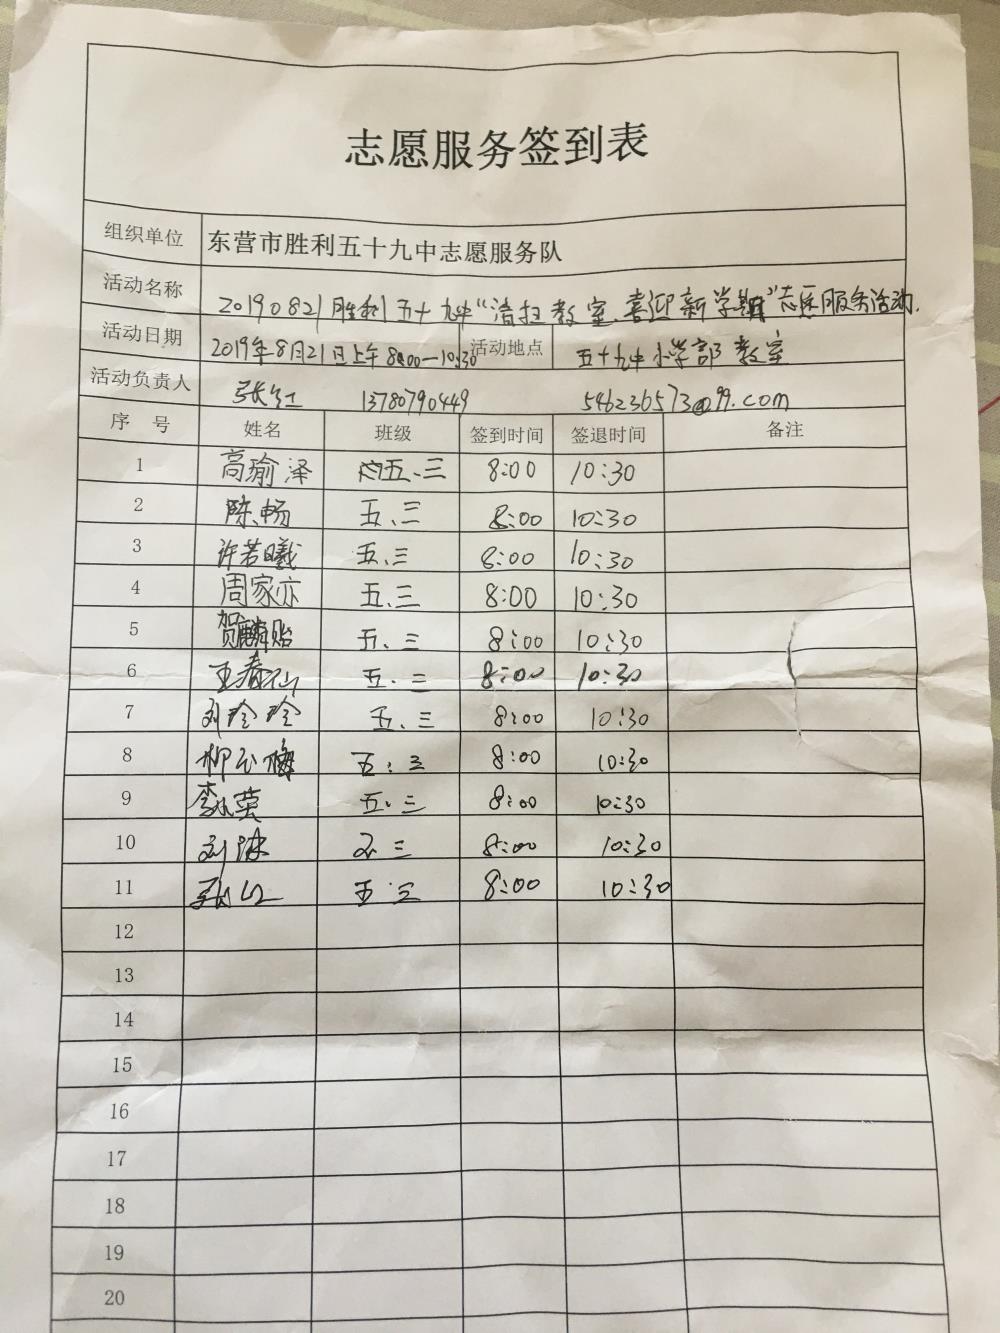 志愿服务签到表
组织单位 东营市胜利五十九中志愿服务队
活动名称 20190821胜利五十九中“清扫教室、喜迎新学期”志愿服务活动.
活动日期 2019年8月21日上午8:00—10:30 活动地点 五十九中小学部教室
活动负责人 张红 13780790449 546236573@qq.com
序号 姓名 班级 签到时间 签退时间 备注
1 高瑜泽 五、三 8:00 10:30
2 陈畅 五、三 8:00 10:30
3 许若曦 五、三 8:00 10:30
4 周家亦 五、三 8:00 10:30
5 贺麟贻 五、三 8:00 10:30
6 王春仙 五、三 8:00 10:30
7 刘玲玲 五、三 8:00 10:30
8 柳玉梅 五、三 8:00 10:30
9 李小英 五、三 8:00 10:30
10 刘 五三 8:00 10:30
11 张红 五三 8:00 10:30
12
13
14
15
16
17
18
19
20